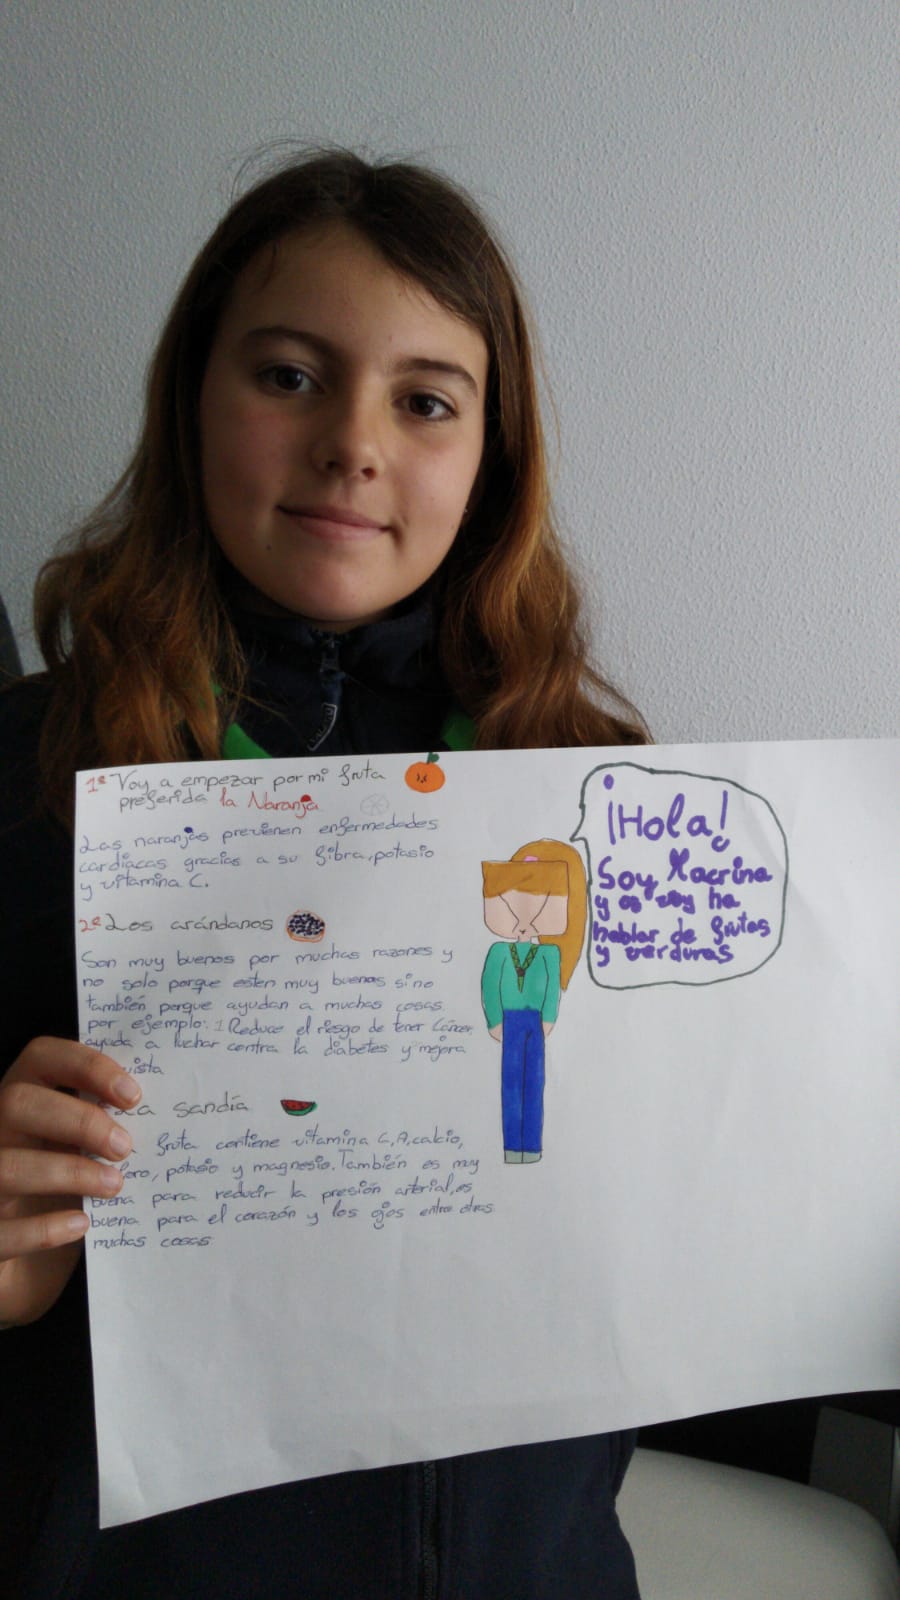 1º Voy a empezar por mi fruta
preferida la Naranja
Las naranjas previenen enfermedades
cardiacas gracias a su fibra, potasio
y vitamina C.
2º Los arándanos
Son muy buenos por muchas razones y
no solo porque esten muy buenos sino
también porque ayudan a muchas cosas
por ejemplo: 1 Reduce el riesgo de tener Cáncer,
ayuda a luchar contra la diabetes y mejora
vista
La sandía
fruta contiene vitamina C, A, calcio,
potasio y magnesio. También es muy
buena para reducir la presión arterial, es
buena para el corazón y los ojos entre otras
muchas cosas
¡Hola!
Soy Macrina
y os voy ha
hablar de frutas
y verduras